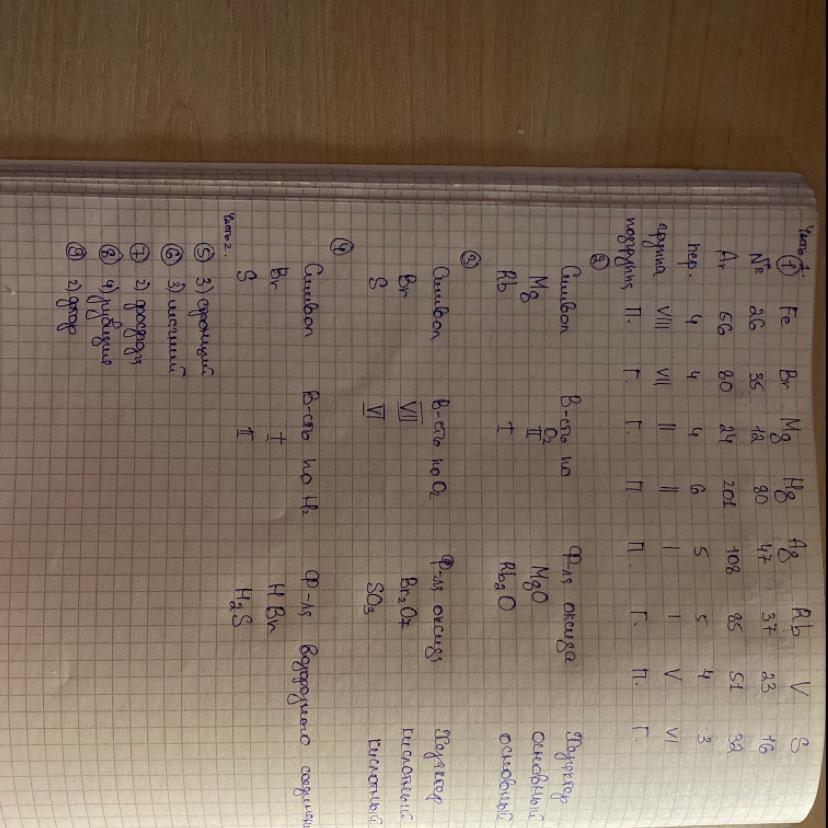 Часть 1.
① Fe Br Mg Hg Ag Rb V S
№ 26 35 12 80 47 37 23 16
Ar 56 80 24 201 108 85 51 32
пер. 4 4 4 6 5 5 4 3
группа VIII VII II II I I V VI
подгруппа П. Г. Г. П. П. Г. П. Г.
②
Символ В-сть по O₂ Ф-ла оксида Характер
Mg II MgO основный
Rb I Rb₂O основный
③
Символ В-сть по O₂ Ф-ла оксида Характер
Br VII Br₂O₇ кислотный
S VI SO₃ кислотный
④
Символ В-сть по H₂ Ф-ла водородного соединен
Br I HBr
S II H₂S
Часть 2.
⑤ 3) стронций
⑥ 3) магний
⑦ 2) фосфор
⑧ 4) рубидия
⑨ 2) фтор